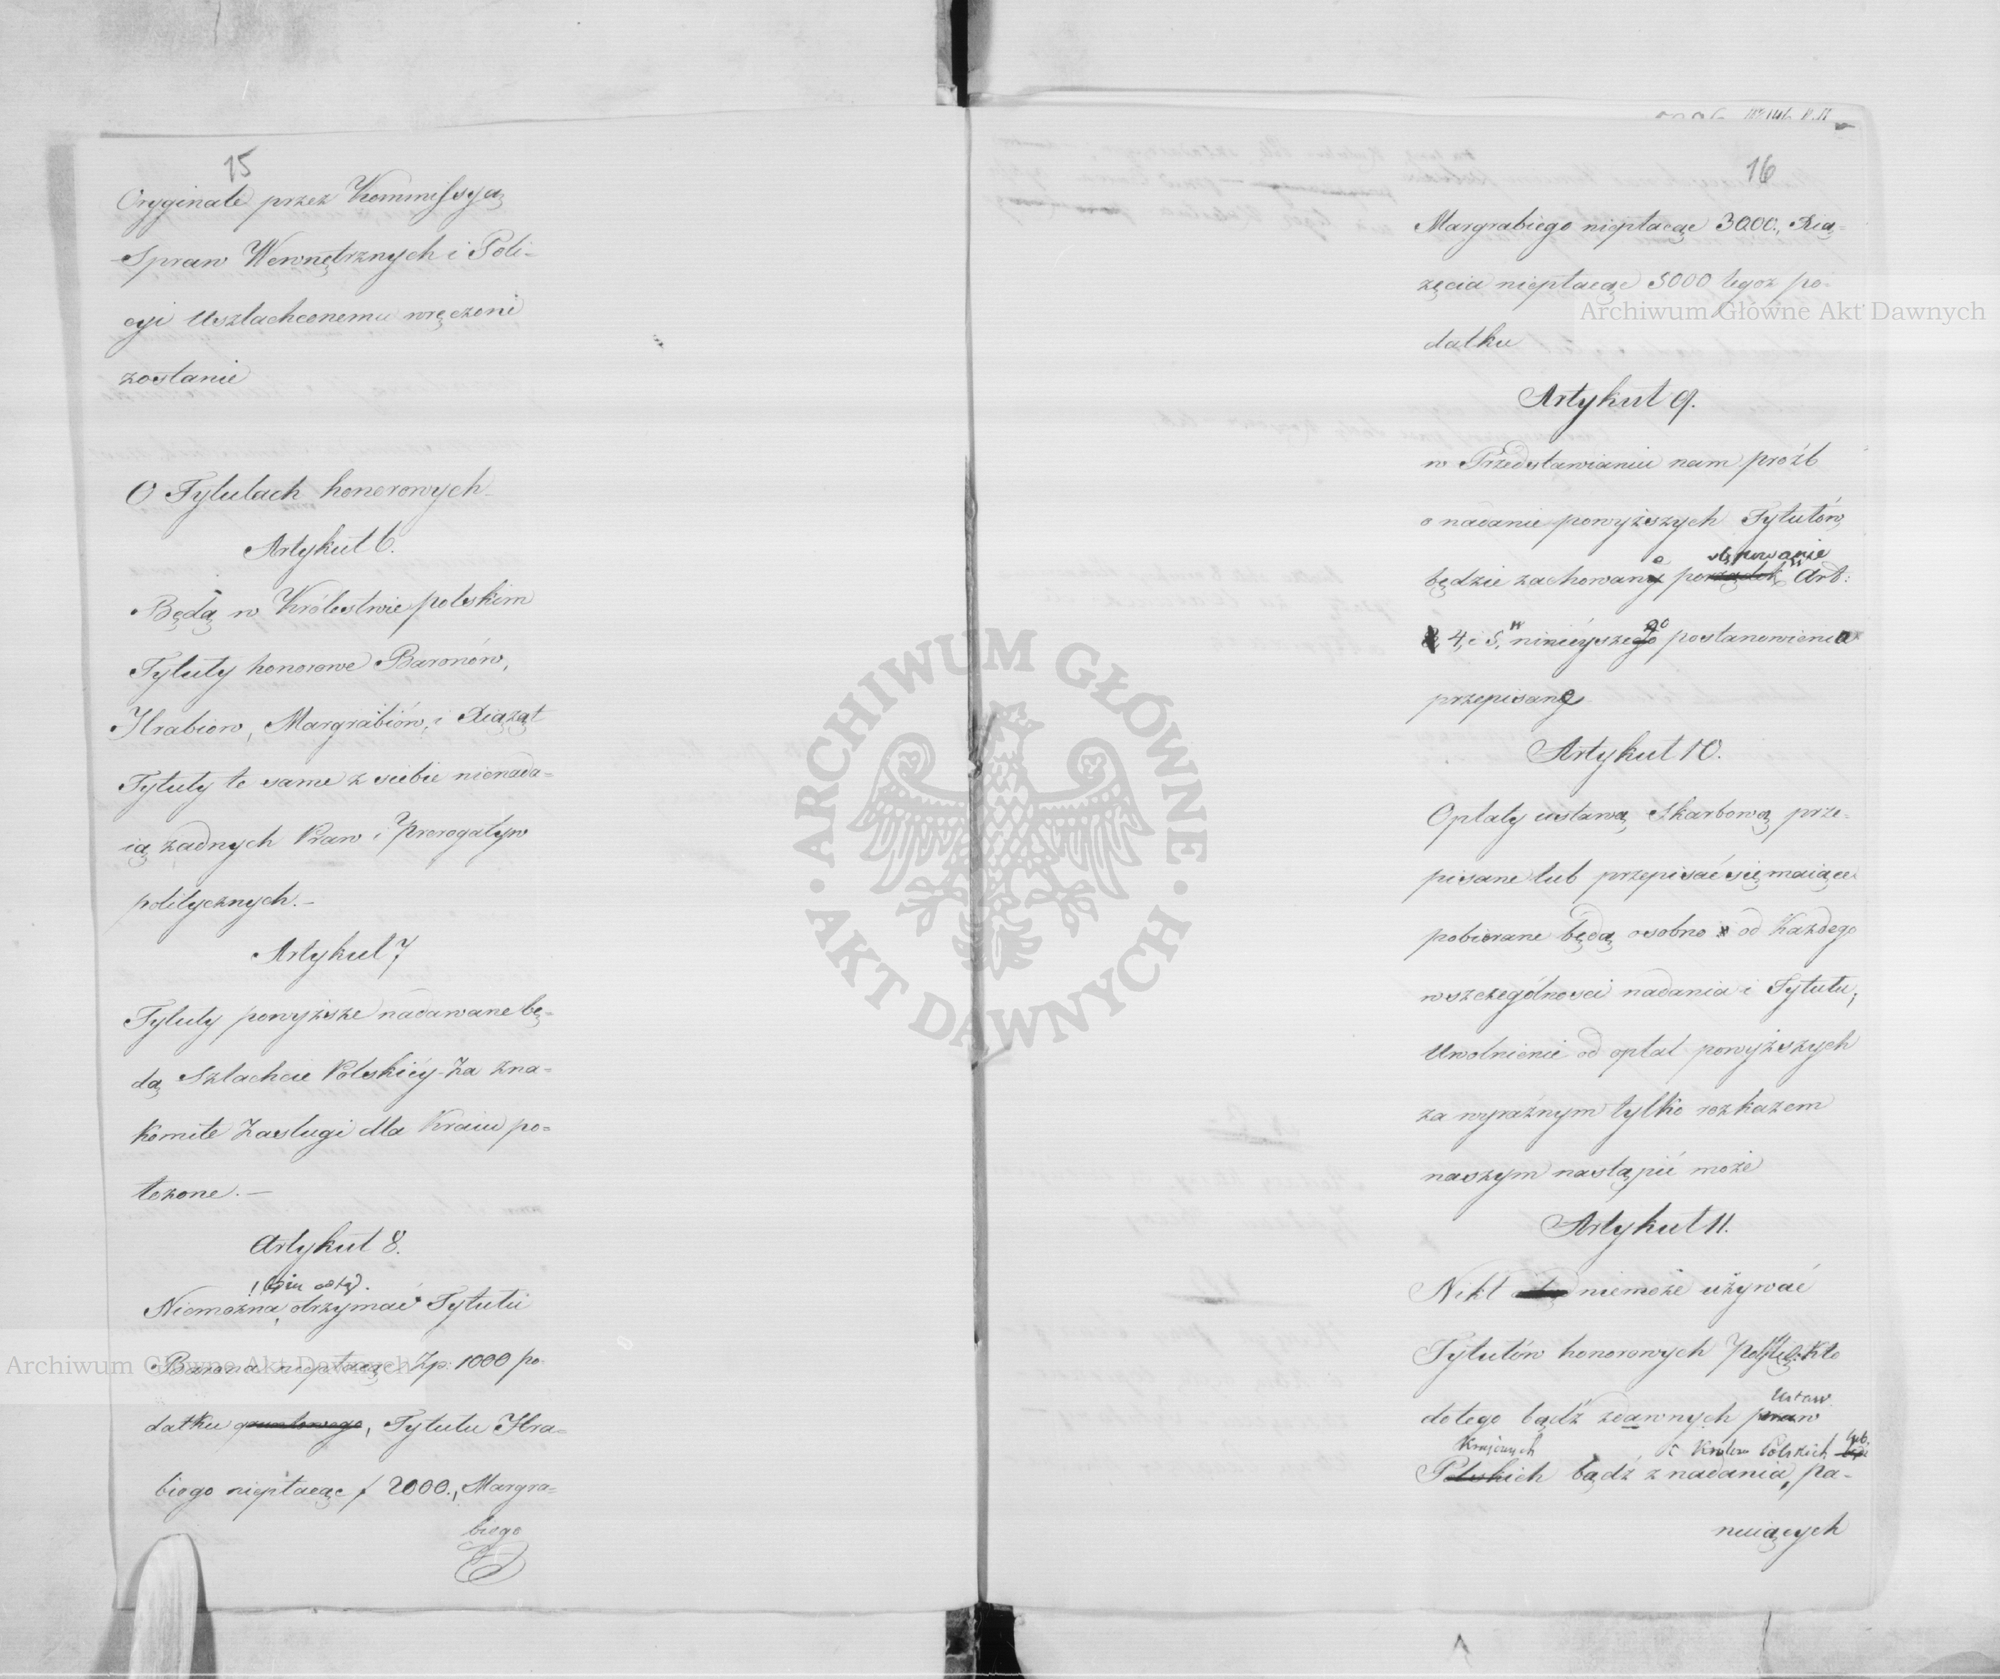 15
Oryginale przez Kommissyą
Spraw Wewnętrznych i Poli-
cyi Uszlachconemu wręczone
zostanie
O Tytułach honorowych
Artykuł 6.
Będą w Królestwie polskim
Tytuły honorowe Baronów,
Hrabiow, Margrabiów, i Xiążąt
Tytuły te same z siebie nienada-
ią żadnych Praw i Prerogatyw
politycznych.—
Artykuł 7
Tytuły powyższe nadawane bę-
dą Szlachcie Polskiéy za zna-
komite Zasługi dla Kraiu po-
łożone.—
Artykuł 8.
odtąd.
Niemożna otrzymać Tytułu
Barona niepłacąc Zp. 1000 po-
datku gruntowego, Tytułu Hra-
biego niepłacąc f 2000., Margra-
biego
16
Margrabiego niepłacąc 3000., Xią-
żęcia niepłacąc 5000 tegoż po-
datku
Artykuł 9.
w Przedstawianiu nam próźb
o nadanie powyższych Tytułów,
e
będzie zachowany porządek Art:
4, i 5, w niniéyszego postanowienia
przepisane
Artykuł 10.
Opłaty ustawą Skarbową prze-
pisane lub przepisać się maiące
pobierane będą osobno od każdego
wszczególności nadania i Tytułu,
Uwolnienie od opłat powyższych
za wyraźnym tylko rozkazem
naszym nastąpić może
Artykuł 11.
Nikt niemoże używać
Tytułów honorowych kto
Ustaw
dotego bądź zdawnych praw
Krajowych Królow Polskich lub
Polskich bądź z nadania, pa-
nuiących
Archiwum Główne Akt Dawnych
Archiwum Główne Akt Dawnych
ARCHIWUM GŁÓWNE AKT DAWNYCH